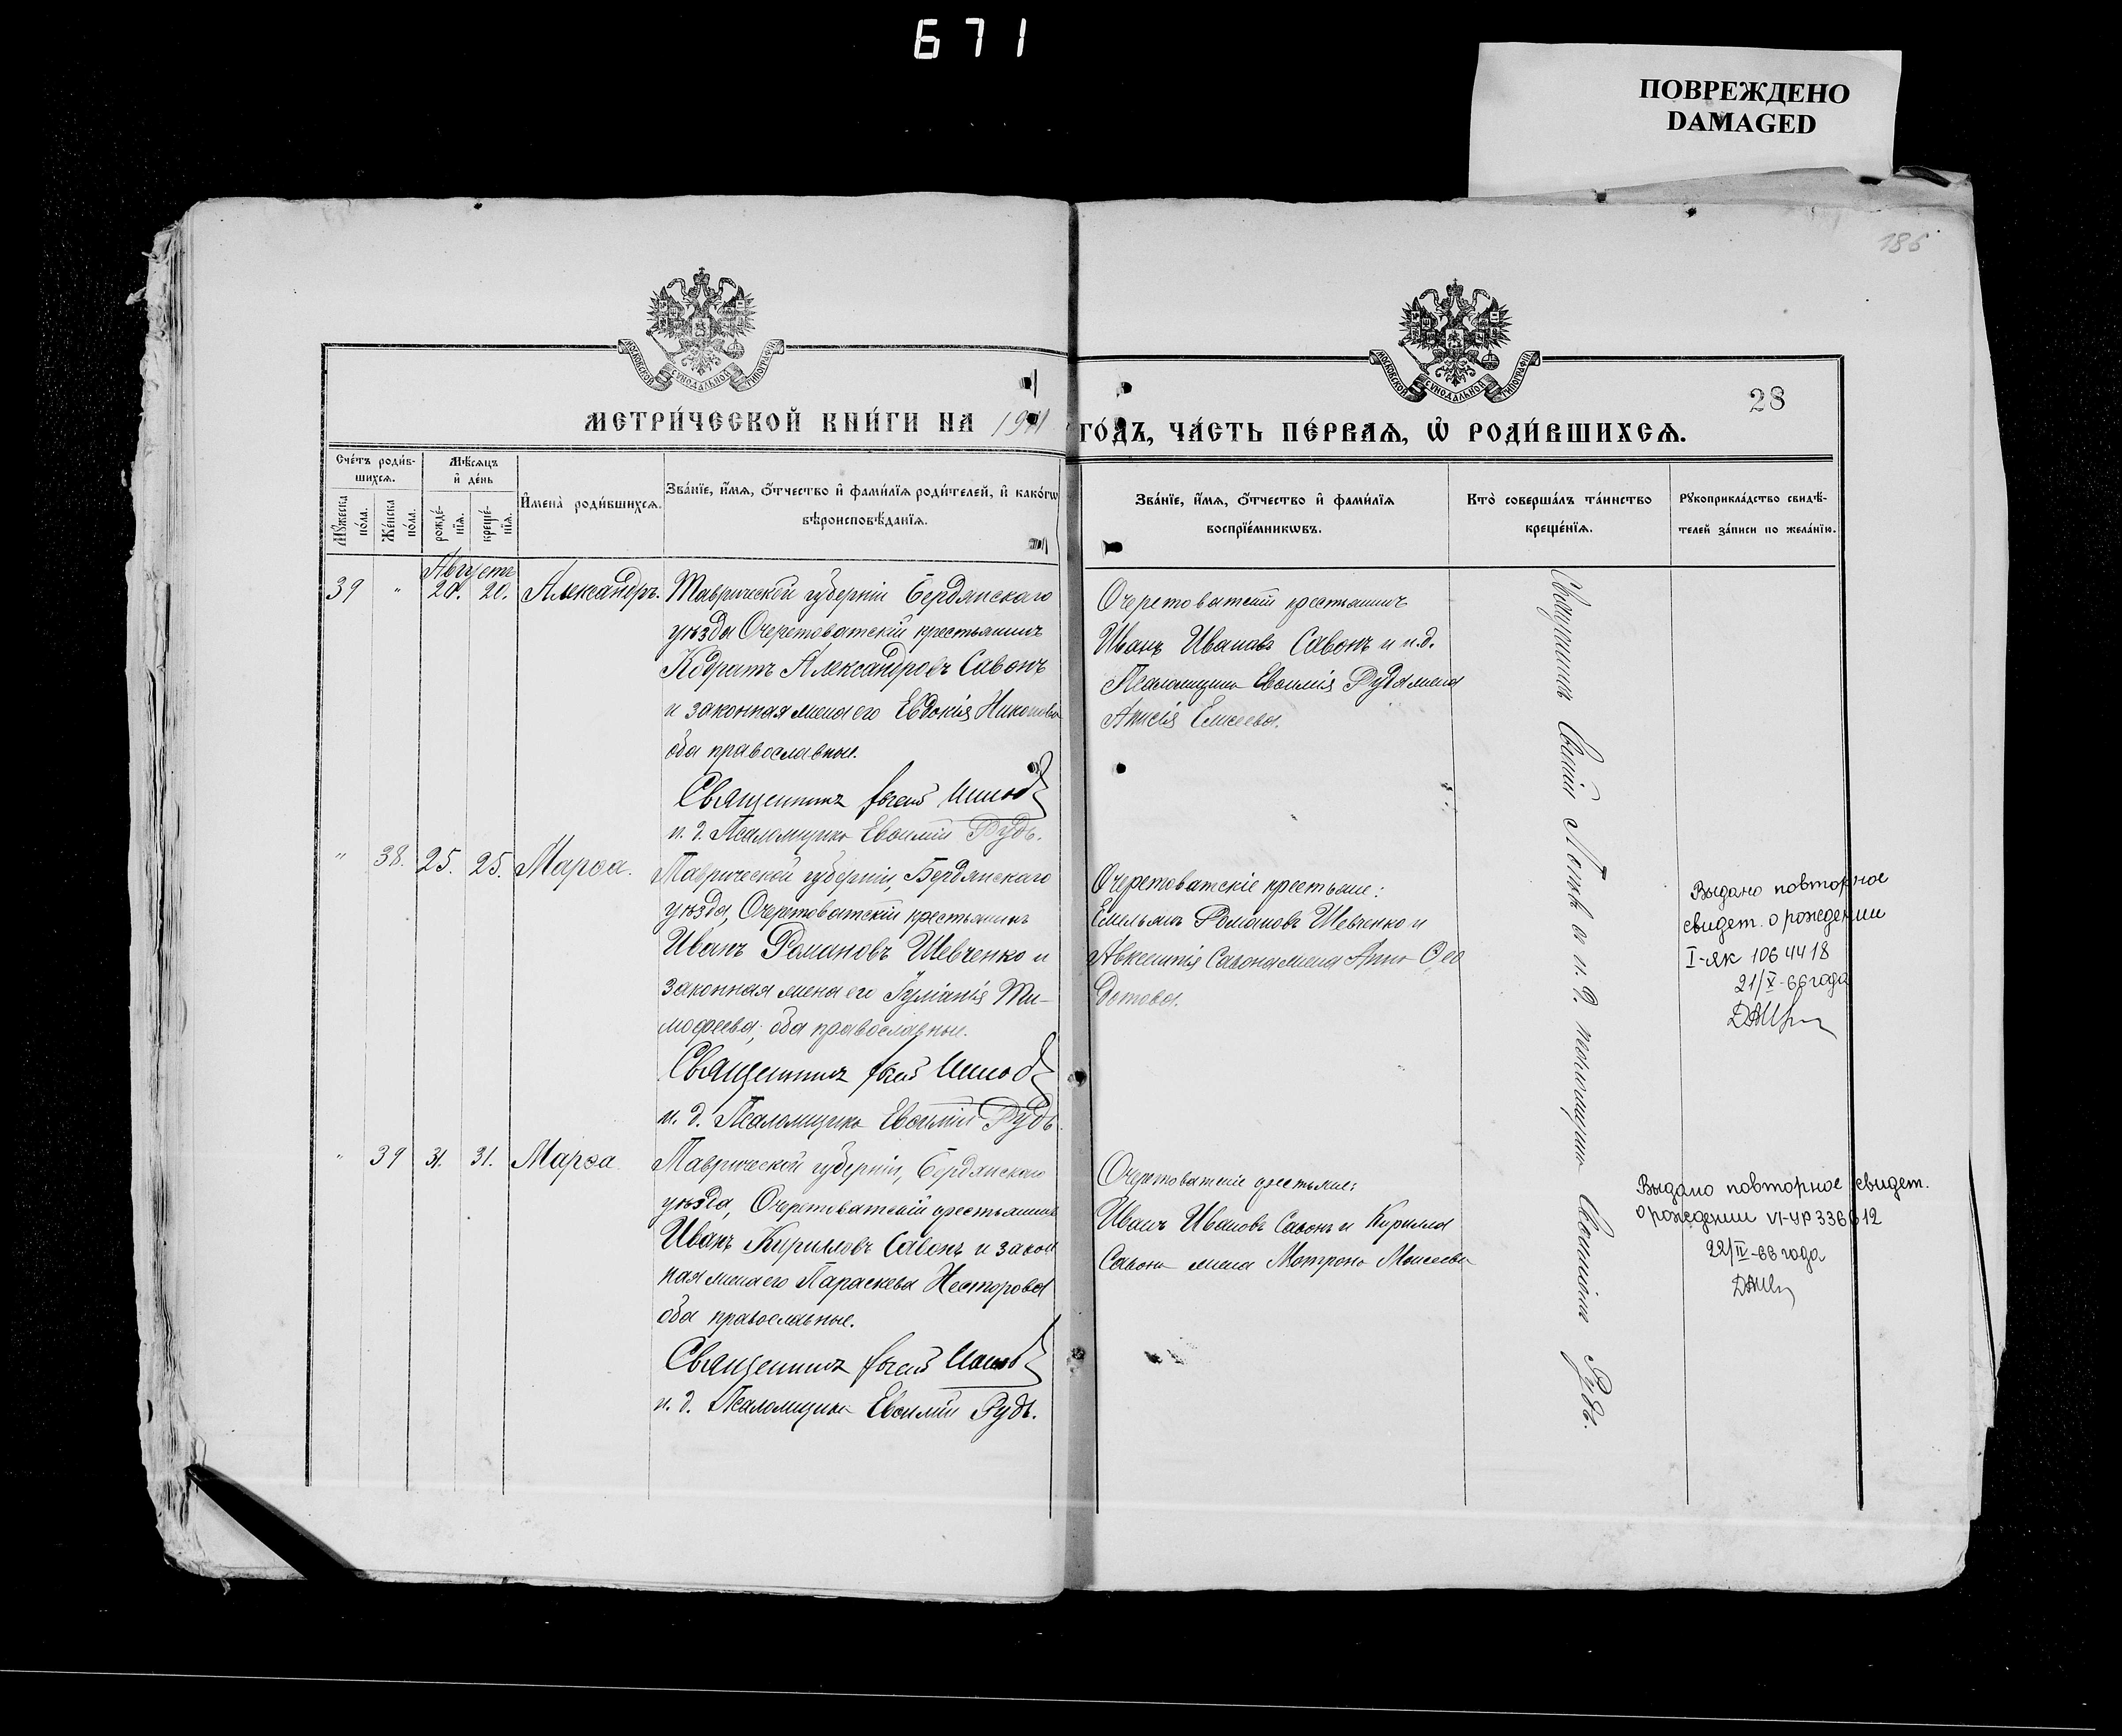 671
ПОВРЕЖДЕНО
DAMAGED
186
МОСКОВСКОЙ СѴНОДАЛЬНОЙ ТИПОГРАФІИ
МОСКОВСКОЙ СѴНОДАЛЬНОЙ ТИПОГРАФІИ
28
МЕТРИ́ЧЕСКОЙ КНИ́ГИ НА 1911 ГО́ДЪ, ЧА́СТЬ ПЕ́РВАѦ, Ѡ РОДИ́ВШИХСѦ.
Сче́тъ роди́в-
шихсѧ.
Мꙋ́жеска по́ла.
Же́нска по́ла.
Мѣ́сѧцъ
и де́нь
рожде́-
нїѧ.
креще́-
нїѧ.
Имена̀ роди́вшихсѧ.
Зва́нїе, и́мѧ, о́тчество и фами́лїѧ роди́телей, и како́гѡ
вѣроисповѣ́данїѧ.
Зва́нїе, и́мѧ, о́тчество и фами́лїѧ
воспрїе́мникѡвъ.
Кто̀ соверша́лъ та́инство
креще́нїѧ.
Рꙋкоприкла́дство свидѣ́-
телей за́писи по жела́нїю.
Августъ
39 " 20. 20. Александръ.
Таврической губерніи Бердянскаго
уѣзда Очеретоватскій крестьянинъ
Кодратъ Александровъ Савонъ
и законная жена его Евдокія Никонова
оба православные.
Священникъ
и. д. Псаломщика Евѳимій Рудь.
Очеретоватскій крестьянинъ
Иванъ Ивановъ Савонъ и и.д.
Псаломщика Евѳимія Рудя жена
Анисія Елисеева.
" 38. 25. 25. Марѳа.
Таврической губерніи, Бердянскаго
уѣзда, Очеретоватскій крестьянинъ
Иванъ Романовъ Шевченко и
законная жена его Іуліанія Ти-
мофеева; оба православные.
Священникъ
и. д. Псаломщика Евѳимій Рудь
Очеретоватскіе крестьяне:
Емельянъ Романовъ Шевченко и
Авксентія Савона жена Анна Ѳео
дотова.
Выдано повторное
свидет. о рождении
I-як 1064418
21/X-66 года
" 39 31. 31. Марѳа.
Таврической губерніи, Бердянскаго
уѣзда, Очеретоватскій крестьянинъ
Иванъ Кирилловъ Савонъ и закон
ная жена его Параскева Несторова
оба православные.
Священникъ
и. д. Псаломщика Евѳимій Рудь.
Очеретоватскіе крестьяне:
Иванъ Ивановъ Савонъ и Кирилла
Савона жена Мотрона Моисеева
Священникъ и и. д. псаломщика Евѳимій Рудь.
Выдано повторное свидет.
о рождении VI-УР 336612
22/IV-66 года